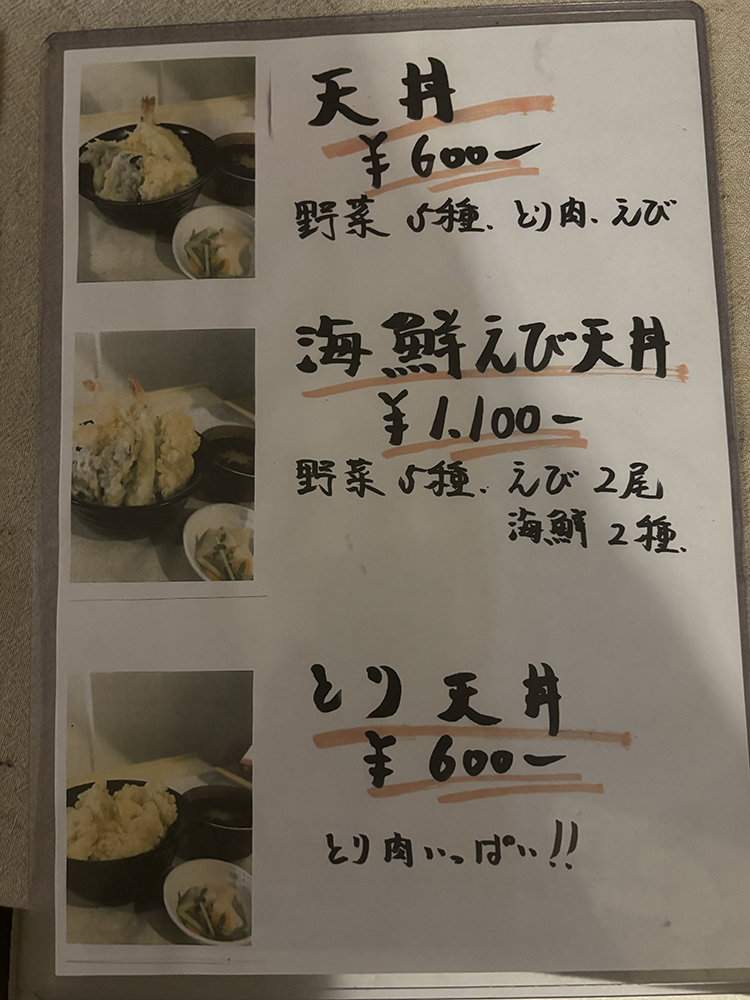 天丼
¥600-
野菜 5種、とり肉、えび
海鮮えび天丼
¥1.100-
野菜 5種、えび 2尾
海鮮 2種、
とり天丼
¥600-
とり肉いっぱい!!